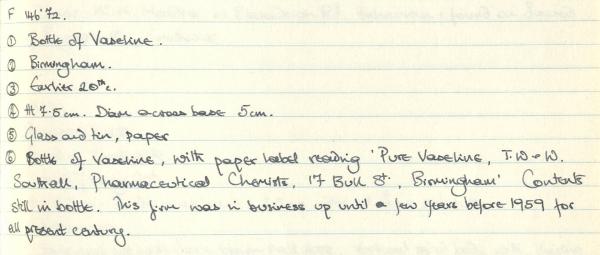 F 146'72.
① Bottle of Vaseline.
② Birmingham.
③ Earlier 20th c.
④ Ht 7.5cm. Diam across base 5cm.
⑤ Glass and tin, paper
⑥ Bottle of Vaseline, with paper label reading 'Pure Vaseline, T.W & W.
Southall, Pharmaceutical Chemists, 17 Bull St., Birmingham' Contents
still in bottle. This firm was in business up until a few years before 1959 for
all present century.